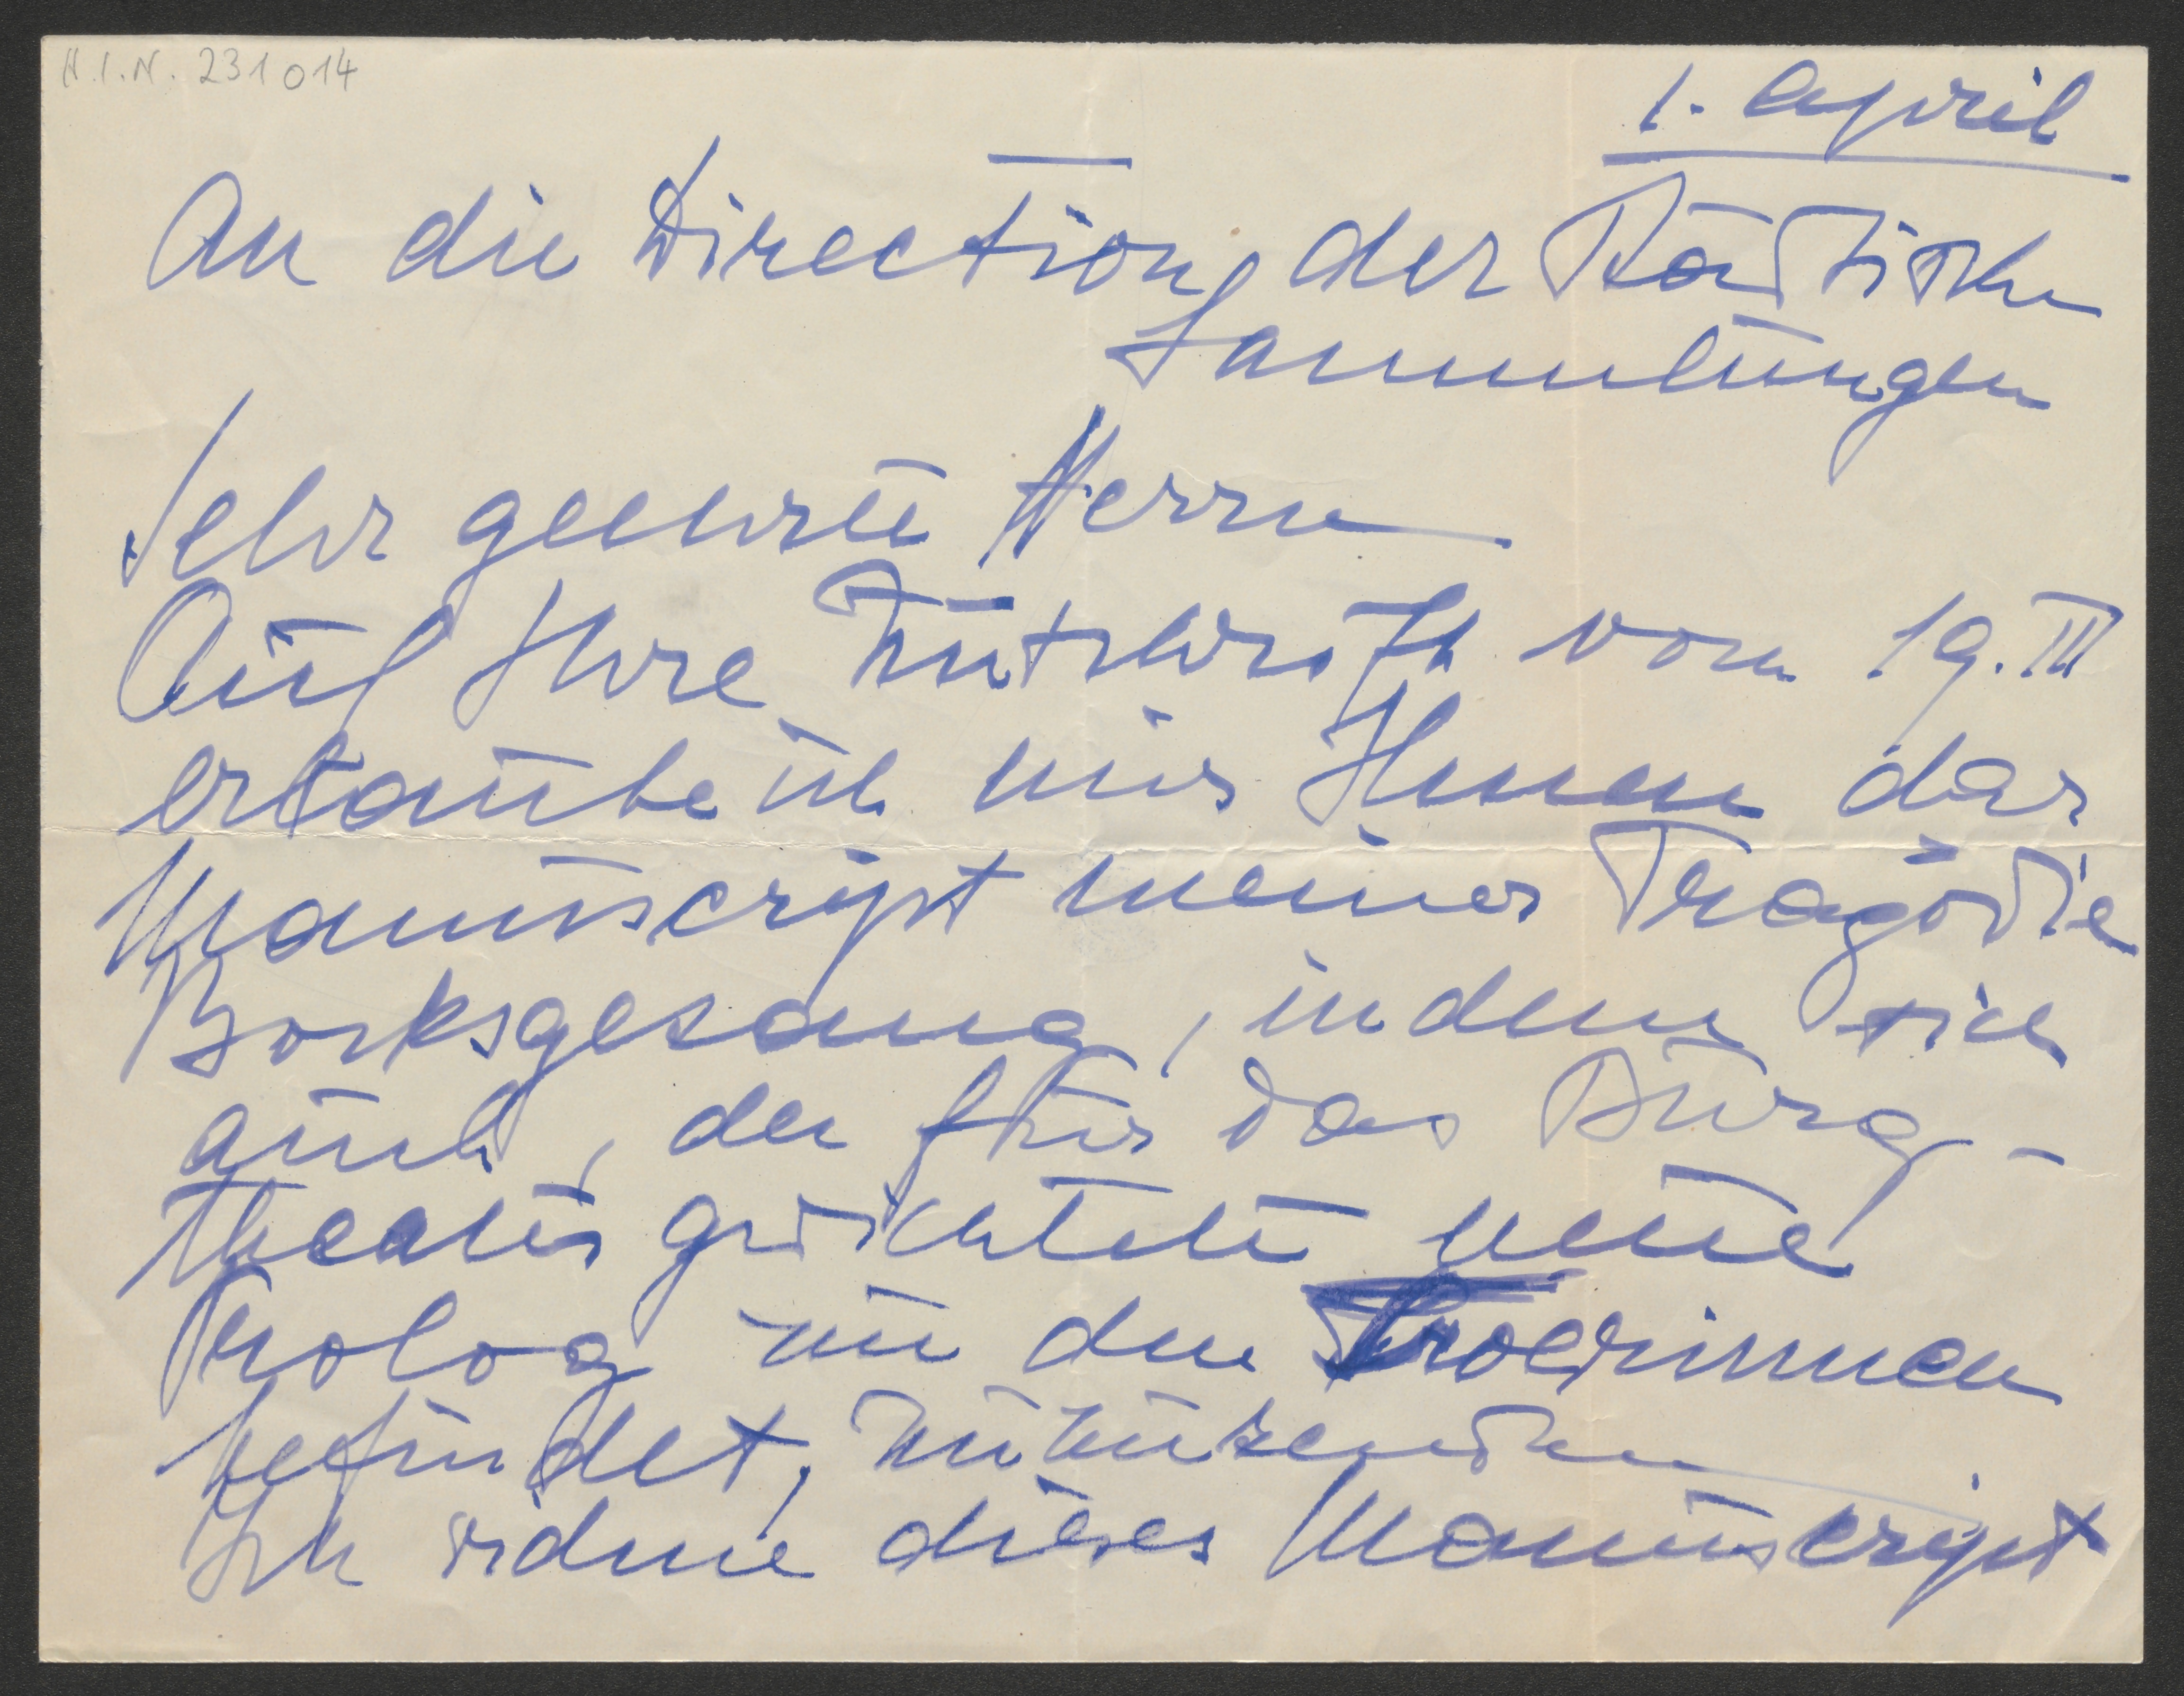 H.I.N. 231014
1. April
An die Direction der Städtischen
Sammlungen
Sehr geehrte Herrn
Auf Ihre Zuschrift vom 19. III
erlaube ich mir Ihnen das
Manuscript meiner Tragödie
Bocksgesang, in dem sich
auch, der für das Burg-
theater gedichtete neue
Prolog zu den Troerinnen
befindet, zuzusenden
Ich widme dieses Manuscript